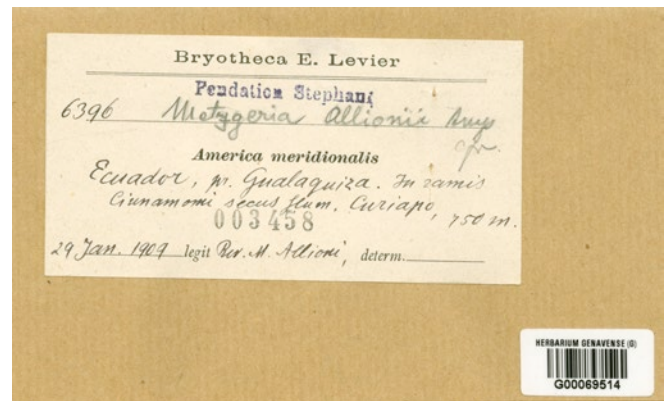 Bryotheca E. Levier
Pendatica Stephani
6396 Metzgeria Allionii
cfr.
America meridionalis
Ecuador, pr. Gualaquiza. In ramis
Cinnamomi secus flum. Curiapo, 750 m.
003458
29 Jan. 1909 legit Rev. M. Allioni, determ.
HERBARIUM GENAVENSE (G)
G00069514